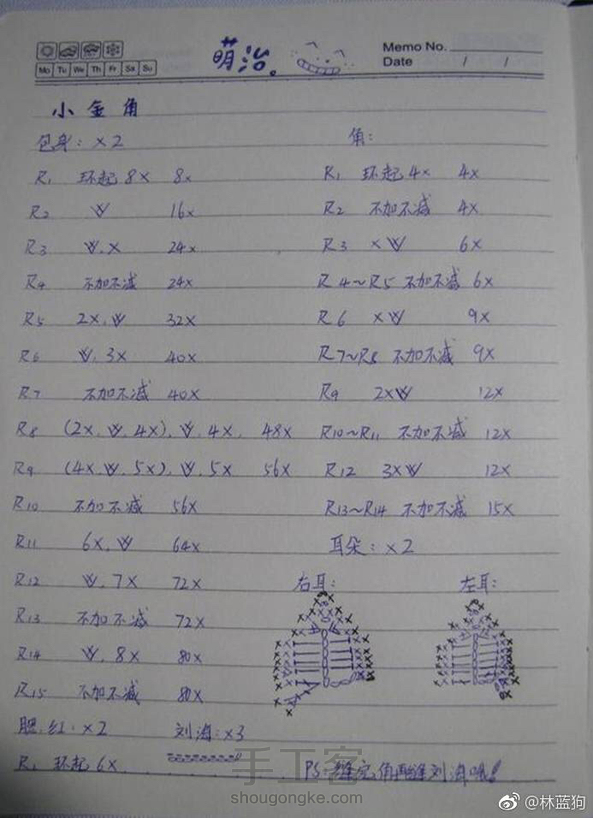 Memo No.
Mo Tu We Th Fr Sa Su
萌治。
Date / /
小金角
包身：×2
R1 环起8× 8×
R2 W 16×
R3 W.× 24×
R4 不加不减 24×
R5 2×.W 32×
R6 W.3× 40×
R7 不加不减 40×
R8 (2×.W.4×).W.4×. 48×
R9 (4×.W.5×).W.5× 56×
R10 不加不减 56×
R11 6×.W 64×
R12 W.7× 72×
R13 不加不减 72×
R14 W.8× 80×
R15 不加不减 80×
腮红：×2
R1 环起6×
刘海：×3
角：
R1 环起4× 4×
R2 不加不减 4×
R3 ×W 6×
R4~R5 不加不减 6×
R6 ×W 9×
R7~R8 不加不减 9×
R9 2×W 12×
R10~R11 不加不减 12×
R12 3×W 12×
R13~R14 不加不减 15×
耳朵：×2
右耳：
左耳：
PS:缝完角再缝刘海哦！
手工客
shougongke.com
@林蓝狗